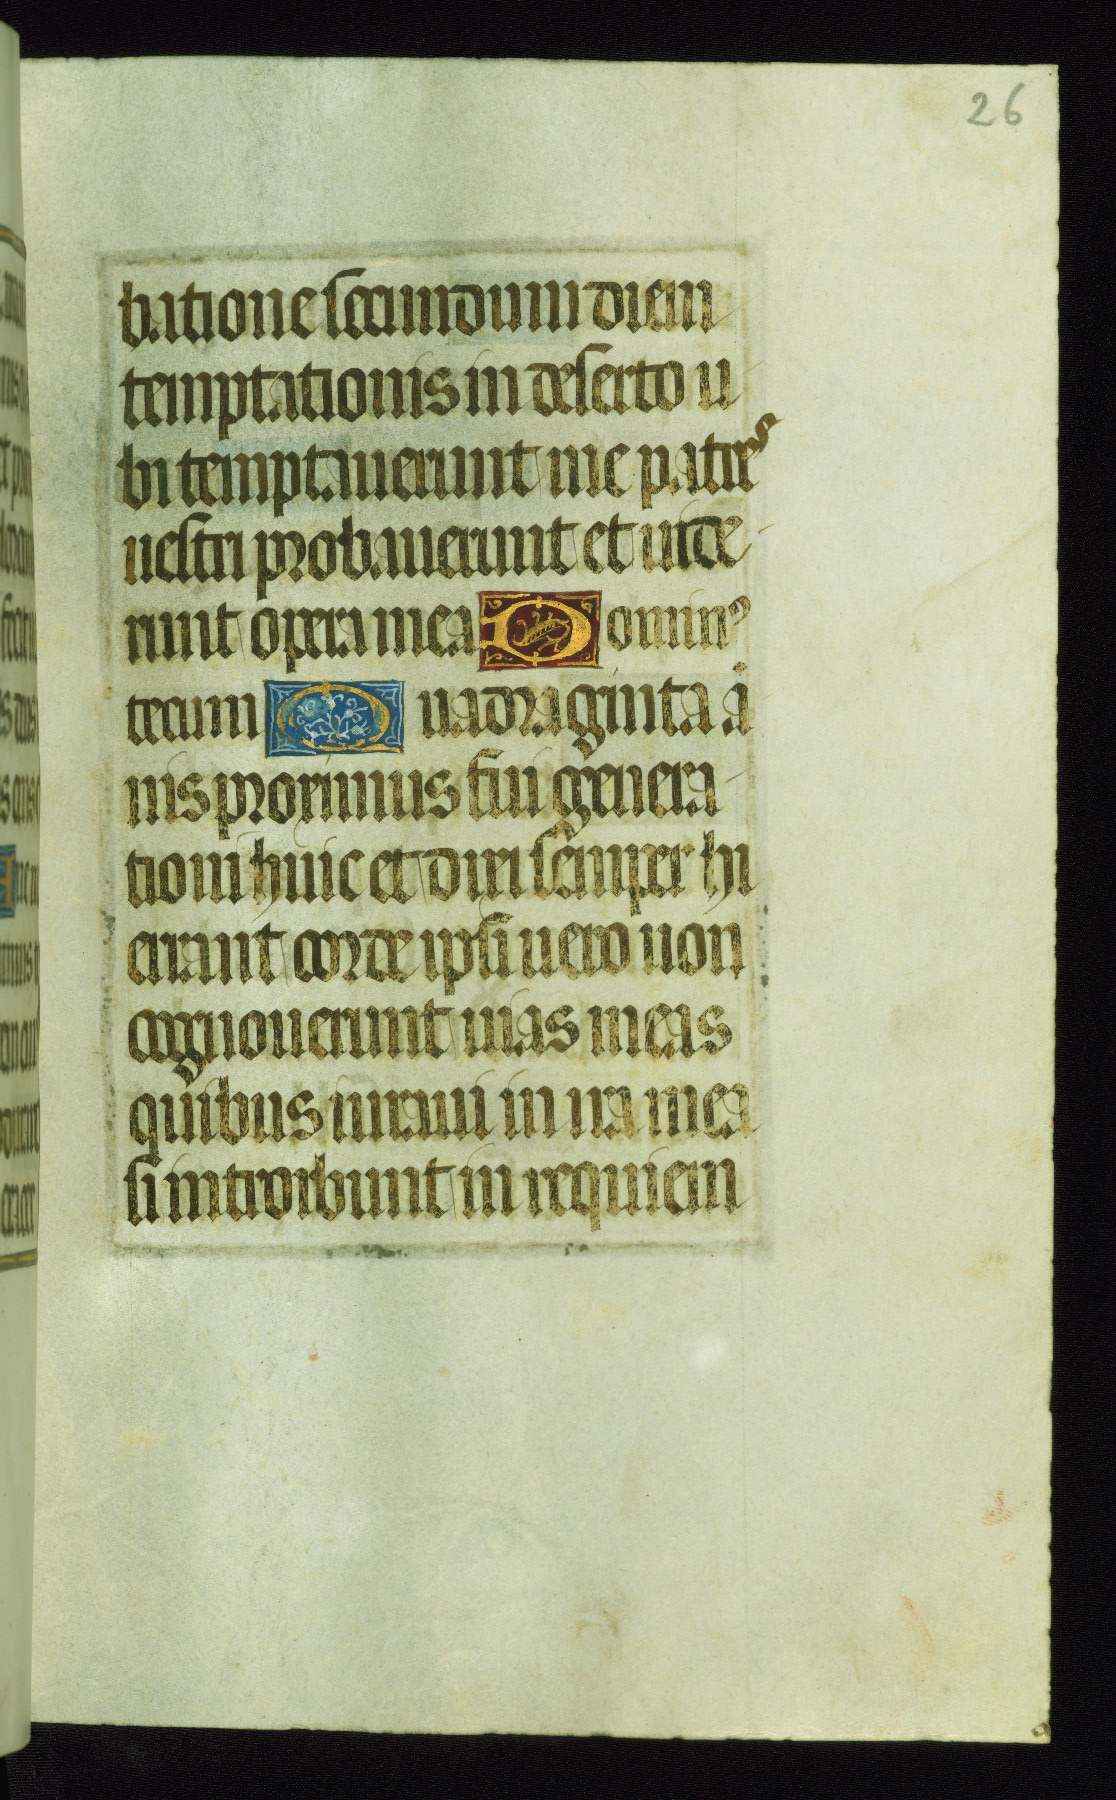 26
batione secundum diem
temptationis in deserto u-
bi temptauerunt me patres
uestri probauerunt et uide-
runt opera mea Dominꝰ
tecum Quadraginta ā
nis proximus fui genera-
tioni huic et dixi semper hii
errant corde ipsi uero non
cognouerunt uias meas
quibus iuraui in ira mea
si introibunt in requiem